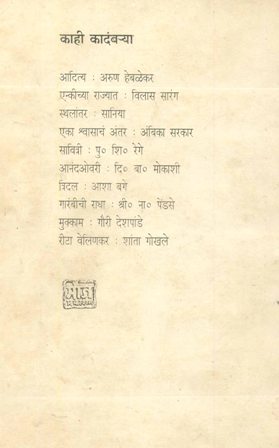 काही कादंबऱ्या
आदित्य : अरुण हेबळेकर
एन्कीच्या राज्यात : विलास सारंग
स्थलांतर : सानिया
एका श्वासाचं अंतर : अंबिका सरकार
सावित्री : पु० शि० रेगे
आनंदओवरी : दि० बा० मोकाशी
त्रिदल : आशा बगे
गारंबीची राधा : श्री० ना० पेंडसे
मुक्काम : गौरी देशपांडे
रीटा वेलिणकर : शांता गोखले
मौज